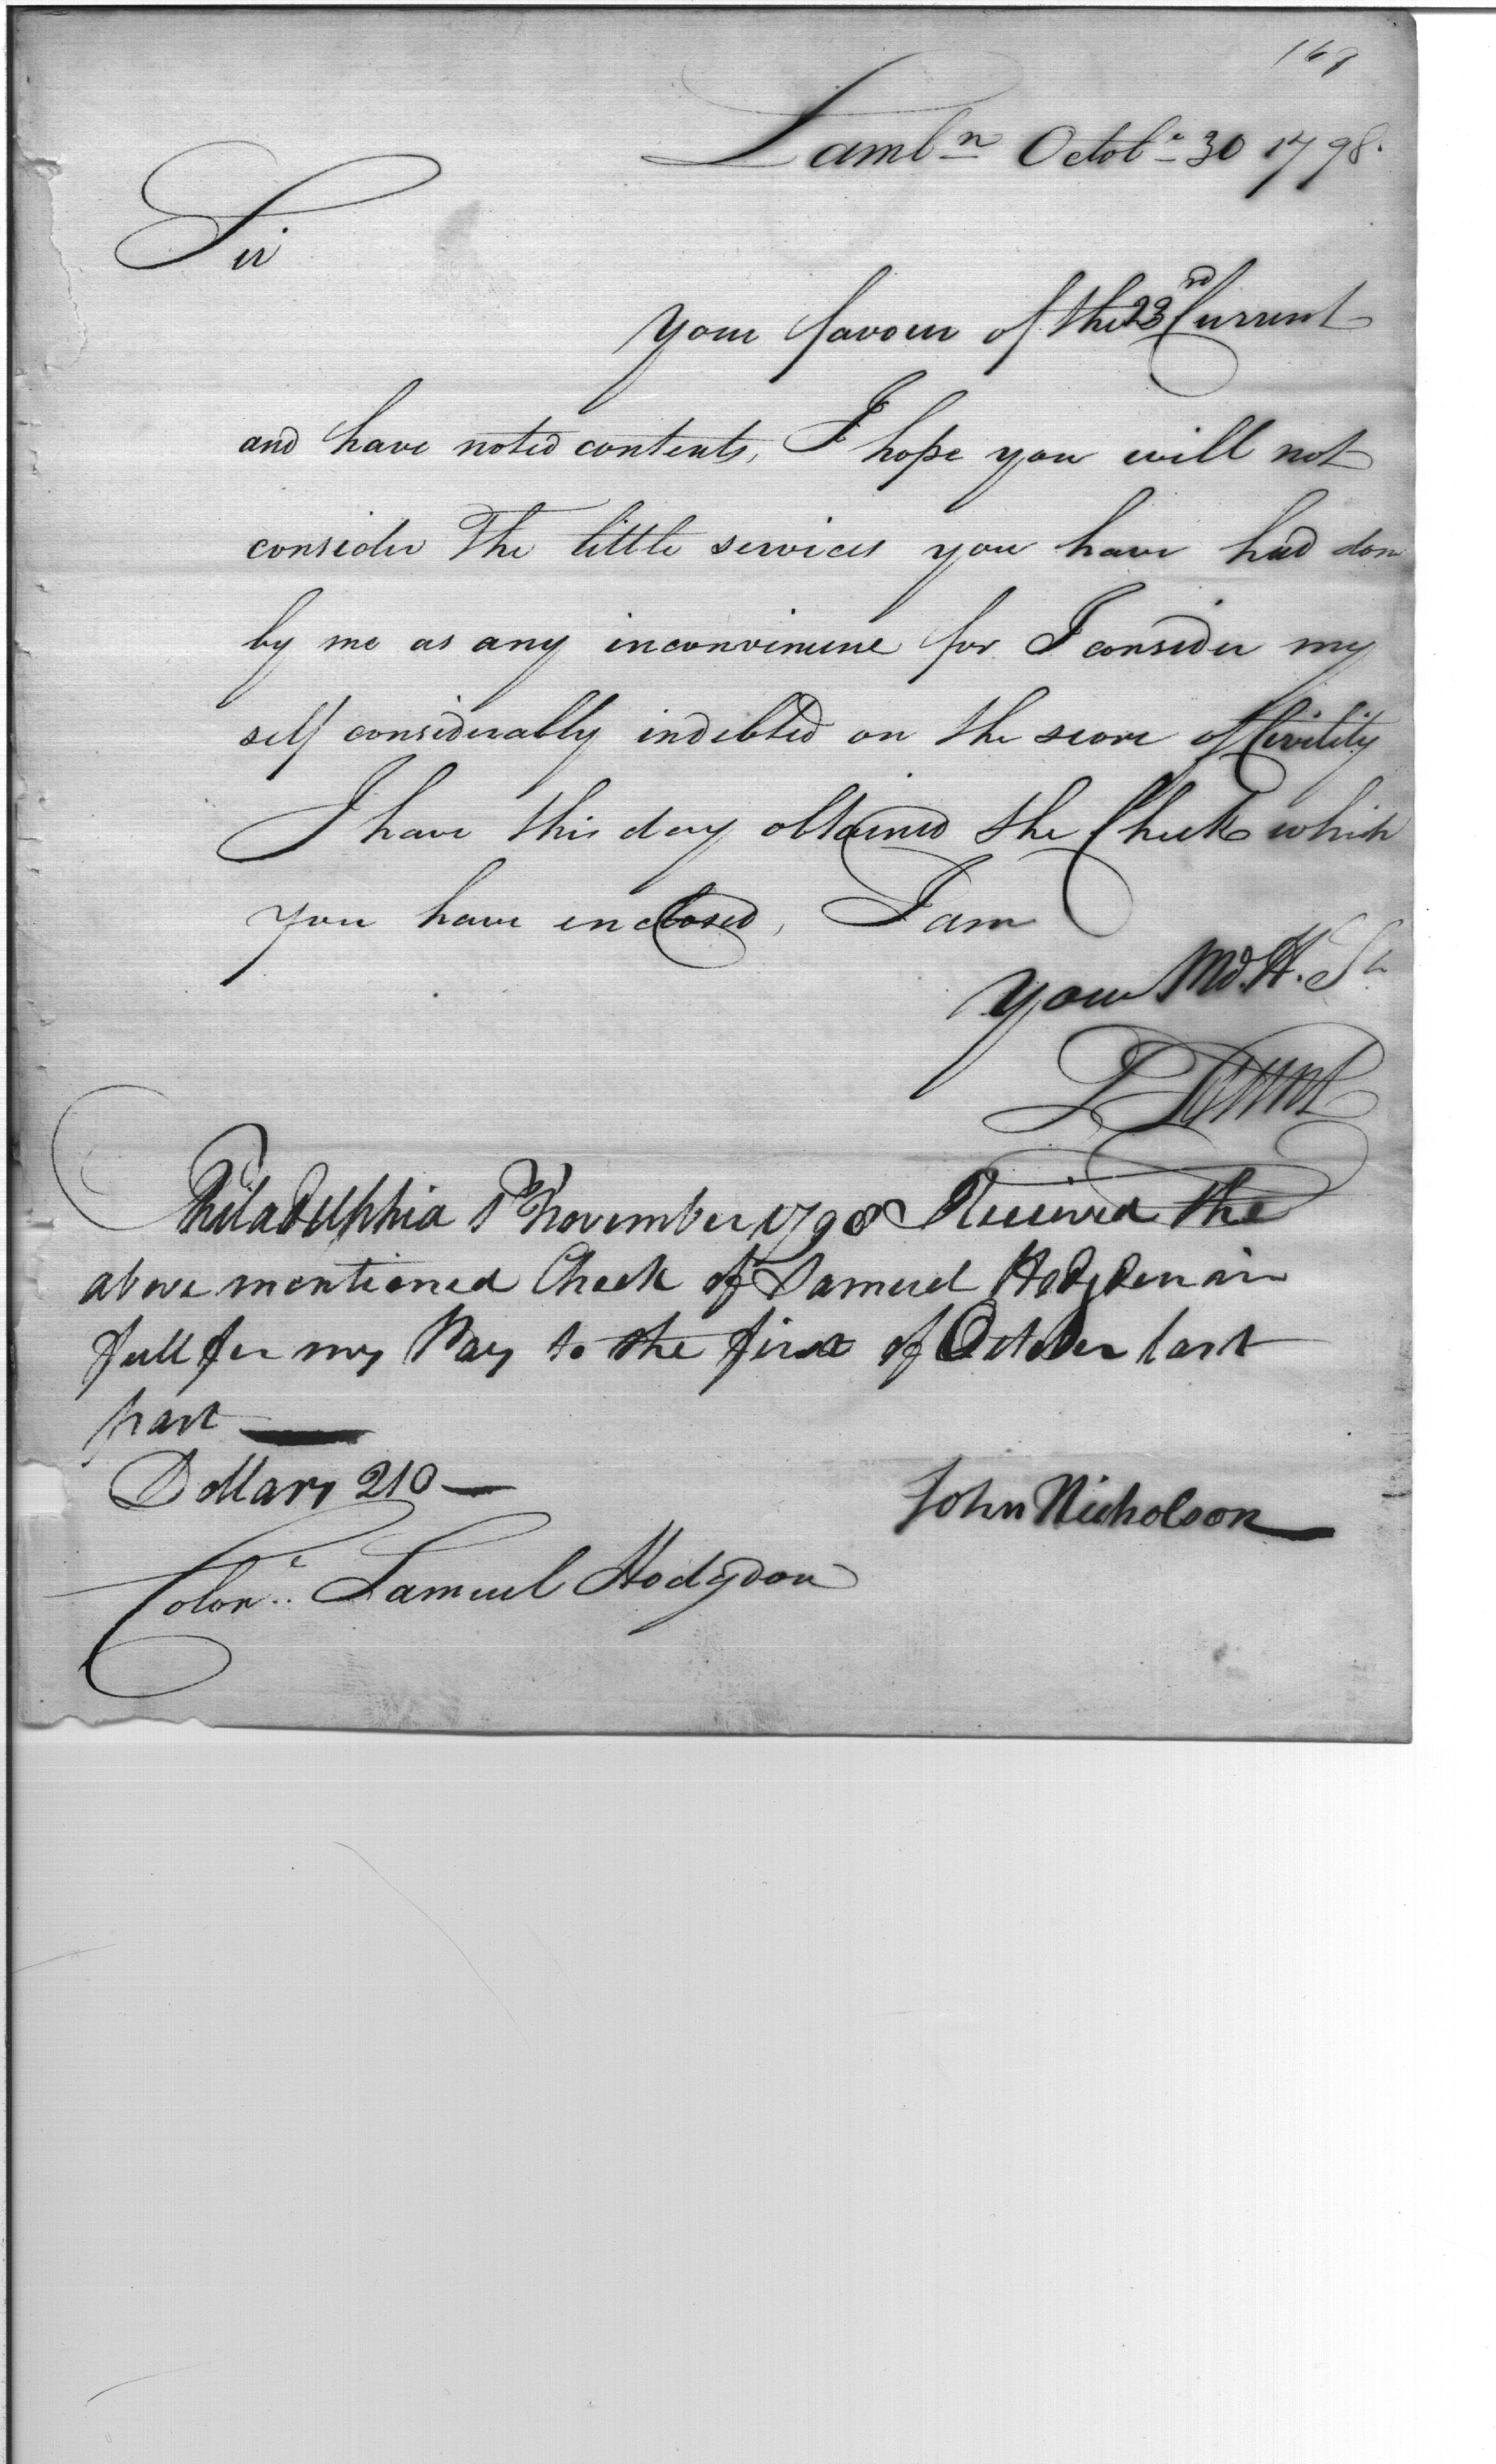 169
Lambn Octobr 30 1798.
Sir
Your favour of the 23rd Current
and have noted contents, I hope you will not
consider The little services you have had done
by me as any inconvinience for I consider my
self considerably indebted on the score of Civility
I have this day obtained the Check which
you have enclosed, I am
Your Mo. H. St
Philadelphia 1st November 1798 Received the
above mentioned Check of Samuel Hodgdon in
full for my Pay to the first of October last
past
Dollars 210
John Nicholson
Colonl. Samuel Hodgdon